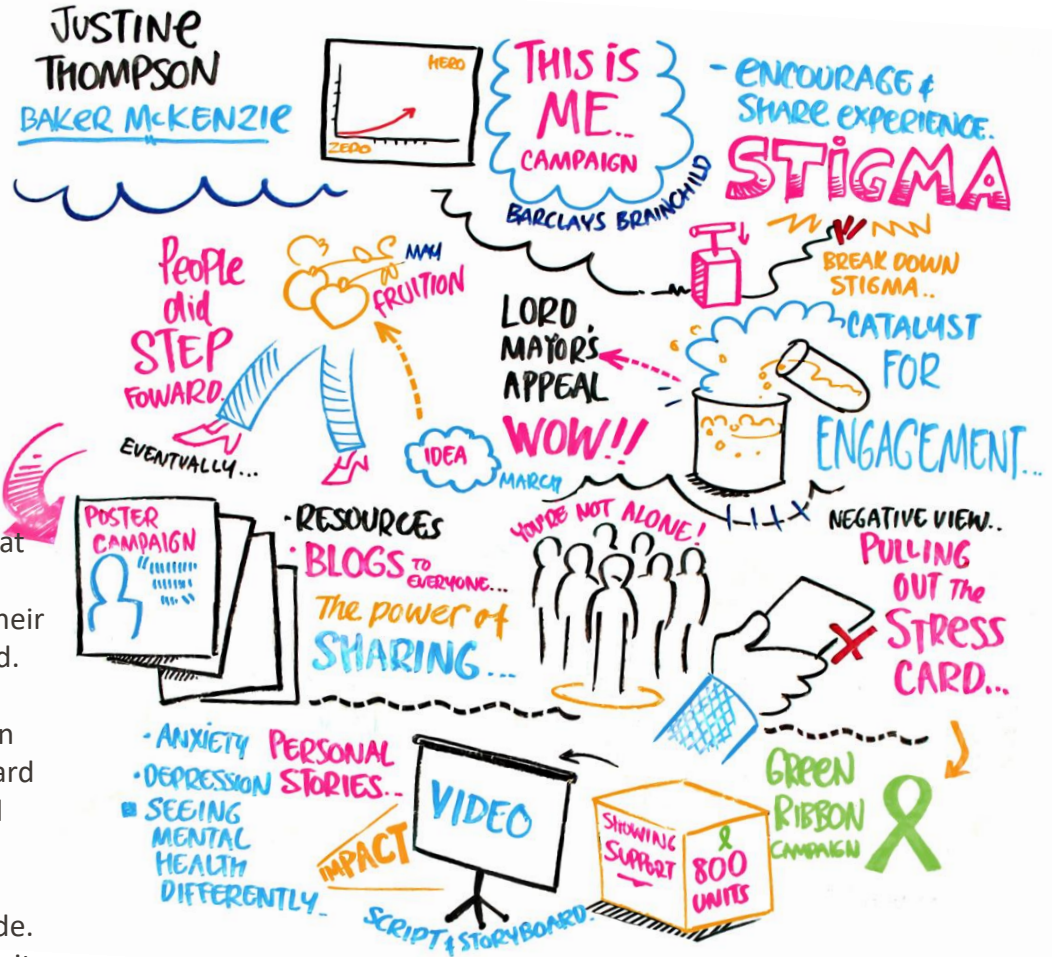 JUSTINE
THOMPSON
BAKER McKENZIE
HERO
ZERO
THIS iS
ME...
CAMPAIGN
BARCLAYS BRAINCHILD
- ENCOURAGE &
SHARE EXPERIENCE.
STiGMA
BREAK DOWN
STIGMA..
People
did
STEP
FOWARD.
EVENTUALLY...
MAY
FRUITION
IDEA
MARCH
LORD
MAYOR'S
APPEAL
WOW!!
CATALYST
FOR
ENGAGEMENT...
POSTER
CAMPAIGN
• RESOURCES
• BLOGS TO
EVERYONE...
The power of
SHARING...
YOU'RE NOT ALONE!
NEGATIVE VIEW..
PULLING
OUT The
STRESS
CARD...
at
heir
d.
n
ard
de.
• ANXIETY
• DEPRESSION
▪ SEEING
MENTAL
HEALTH
DIFFERENTLY...
PERSONAL
STORIES...
IMPACT
VIDEO
SCRIPT & STORYBOARD.
SHOWING
SUPPORT
800
UNITS
GREEN
RIBBON
CAMPAIGN